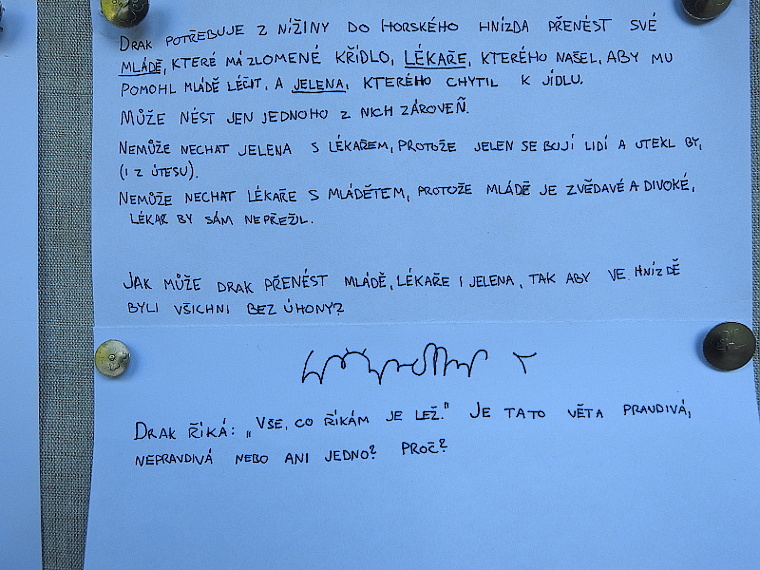 DRAK POTŘEBUJE Z NÍŽINY DO HORSKÉHO HNÍZDA PŘENÉST SVÉ
MLÁDĚ, KTERÉ MÁ ZLOMENÉ KŘÍDLO, LÉKAŘE, KTERÉHO NAŠEL, ABY MU
POMOHL MLÁDĚ LÉČIT, A JELENA, KTERÉHO CHYTIL K JÍDLU.
MŮŽE NÉST JEN JEDNOHO Z NICH ZÁROVEŇ.
NEMŮŽE NECHAT JELENA S LÉKAŘEM, PROTOŽE JELEN SE BOJÍ LIDÍ A UTEKL BY,
(I Z ÚTESU).
NEMŮŽE NECHAT LÉKAŘE S MLÁDĚTEM, PROTOŽE MLÁDĚ JE ZVĚDAVÉ A DIVOKÉ,
LÉKAŘ BY SÁM NEPŘEŽIL.
JAK MŮŽE DRAK PŘENÉST MLÁDĚ, LÉKAŘE I JELENA, TAK ABY VE HNÍZDĚ
BYLI VŠICHNI BEZ ÚHONY?
DRAK ŘÍKÁ: „VŠE, CO ŘÍKÁM JE LEŽ." JE TATO VĚTA PRAVDIVÁ,
NEPRAVDIVÁ NEBO ANI JEDNO? PROČ?